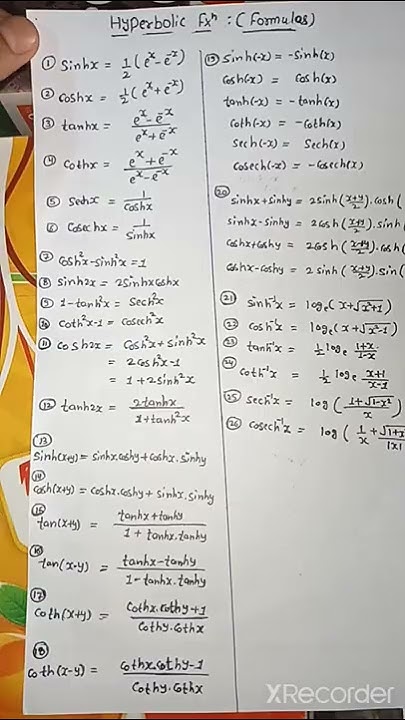 Hyperbolic Fxⁿ : (Formulas)
① Sinhx = 1/2 (eˣ - e⁻ˣ)
② coshx = 1/2 (eˣ + e⁻ˣ)
③ tanhx = (eˣ - e⁻ˣ)/(eˣ + e⁻ˣ)
④ Cothx = (eˣ + e⁻ˣ)/(eˣ - e⁻ˣ)
⑤ Sechx = 1/Coshx
⑥ Cosechx = 1/Sinhx
⑦ Cosh²x - Sinh²x = 1
⑧ Sinh2x = 2Sinhxcoshx
⑨ 1 - tanh²x = Sech²x
⑩ Coth²x - 1 = Cosech²x
⑪ Cosh2x = Cosh²x + sinh²x
= 2Cosh²x - 1
= 1 + 2sinh²x
⑫ tanh2x = 2tanhx/(1 + tanh²x)
⑬
Sinh(x+y) = sinhx.coshy + coshx.sinhy
⑭
Cosh(x+y) = coshx.coshy + sinhx.sinhy
⑮
tan(x+y) = (tanhx + tanhy)/(1 + tanhx.tanhy)
⑯
tan(x-y) = (tanhx - tanhy)/(1 - tanhx.tanhy)
⑰
Coth(x+y) = (Cothx.Cothy + 1)/(Cothy.Cothx)
⑱
Coth(x-y) = (Cothx.Cothy - 1)/(Cothy.Cothx)
⑲ Sinh(-x) = -Sinh(x)
Cosh(x) = Cosh(x)
tanh(-x) = -tanh(x)
Coth(-x) = -Coth(x)
Sech(-x) = Sech(x)
Cosech(-x) = -Cosech(x)
⑳
Sinhx + Sinhy = 2Sinh((x+y)/2).cosh(
Sinhx - Sinhy = 2Cosh((x+y)/2).Sinh
Coshx + Coshy = 2Cosh((x+y)/2).Cosh
Coshx - Coshy = 2Sinh((x+y)/2).Sin(
㉑ Sinh⁻¹x = logₑ(x + √(x²+1))
㉒ Cosh⁻¹x = logₑ(x + √(x²-1))
㉓ tanh⁻¹x = 1/2 logₑ (1+x)/(1-x)
㉔ Coth⁻¹x = 1/2 logₑ (x+1)/(x-1)
㉕ Sech⁻¹x = log((1 + √(1-x²))/x)
㉖ Cosech⁻¹x = log(1/x + √(1+x
|x|
XRecorder